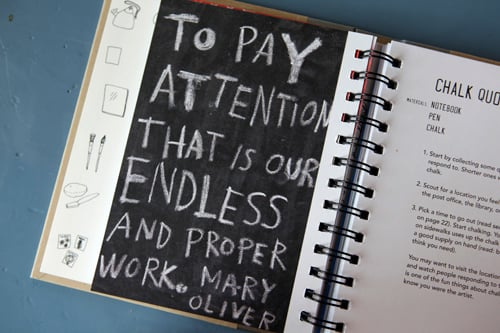 TO PAY
ATTENTION
THAT IS OUR
ENDLESS
AND PROPER
WORK. MARY
OLIVER
CHALK QUO
MATERIALS: NOTEBOOK
PEN
CHALK
1. Start by collecting some q
respond to. Shorter ones a
chalk.
2. Scout for a location you feel
the post office, the librar
3. Pick a time to go out (read se
on 22). Start chalking. Yo
on sidewalks uses up the cha
a good supply on hand (read: b
think you need).
You may want to visit the locatio
and watch people responding to
is one of the fun things about chal
know you were the artist.